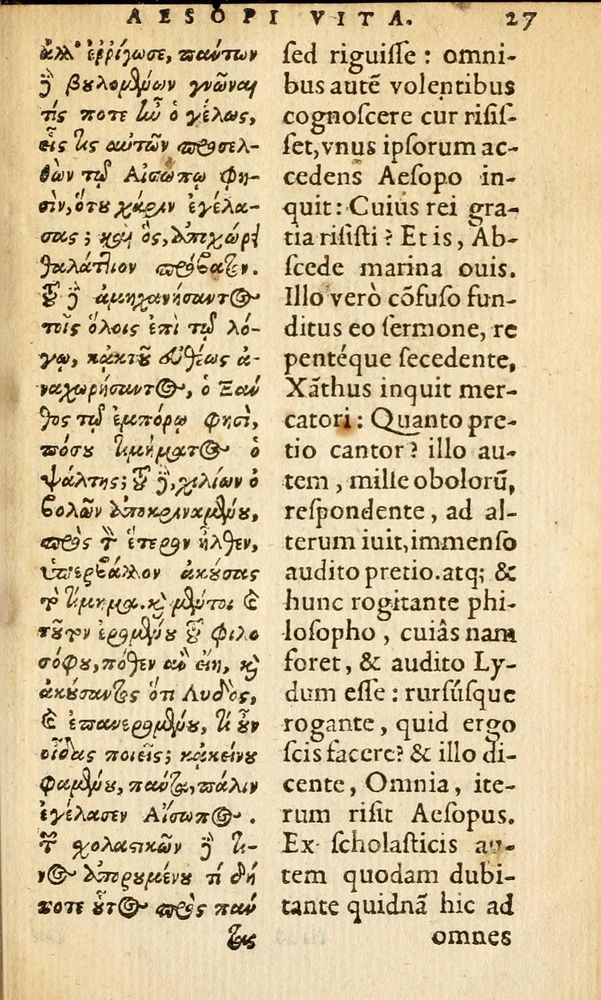 AESOPI VITA. 27
ἀλλ' ἐρρίγωσε, πάντων
δὲ βουλομένων γνῶναι
τίς ποτε ἦν ὁ γέλως,
εἷς τις αὐτῶν προσελ-
θὼν τῷ Αἰσώπῳ φη-
σὶν, ὅτου χάριν ἐγέλα-
σας; καὶ ὃς, ἀποχώρει
θαλάττιον πρόβατον.
τοῦ δὲ ἀμηχανήσαντος
τοῖς ὅλοις ἐπὶ τῷ λό-
γῳ, κἀκ τοῦ εὐθέως ἀ-
ναχωρήσαντος, ὁ Ξάν
θος τῷ ἐμπόρῳ φησὶ,
πόσου τιμήματος ὁ
ψάλτης; τοῦ δὲ, χιλίων ὀ
βολῶν ἀποκριναμένου,
πρὸς τὸν ἕτερον ἦλθεν,
ὑπερβάλλον ἀκούσας
τὸ τίμημα. καὶ μέντοι καὶ
τοῦτον ἐρομένου τοῦ φιλο
σόφου, πόθεν ἂν εἴη, καὶ
ἀκούσαντος ὅτι Λυδὸς,
καὶ ἐπανερομένου, τί οὖν
οἶδας ποιεῖν; κἀκείνου
φαμένου, πάντα, πάλιν
ἐγέλασεν Αἴσωπος.
τῶν σχολαστικῶν δέ τι-
νος ἀπορουμένου τί δή
ποτε οὗτος πρὸς πάν
τας
sed riguiſſe : omni-
bus autẽ volentibus
cognoſcere cur riſiſ-
ſet, vnus ipſorum ac-
cedens Aeſopo in-
quit: Cuius rei gra-
tia riſiſti? Et is, Ab-
ſcede marina ouis.
Illo verò cõfuſo fun-
ditus eo ſermone, re
pentéque ſecedente,
Xãthus inquit mer-
catori: Quanto pre-
tio cantor? illo au-
tem, mille obolorũ,
reſpondente, ad al-
terum iuit, immenſo
audito pretio. atq; &
hunc rogitante phi-
loſopho, cuiâs nam
foret, & audito Ly-
dum eſſe: rurſúſque
rogante, quid ergo
ſcis facere? & illo di-
cente, Omnia, ite-
rum riſit Aeſopus.
Ex ſcholaſticis au-
tem quodam dubi-
tante quidnã hic ad
omnes